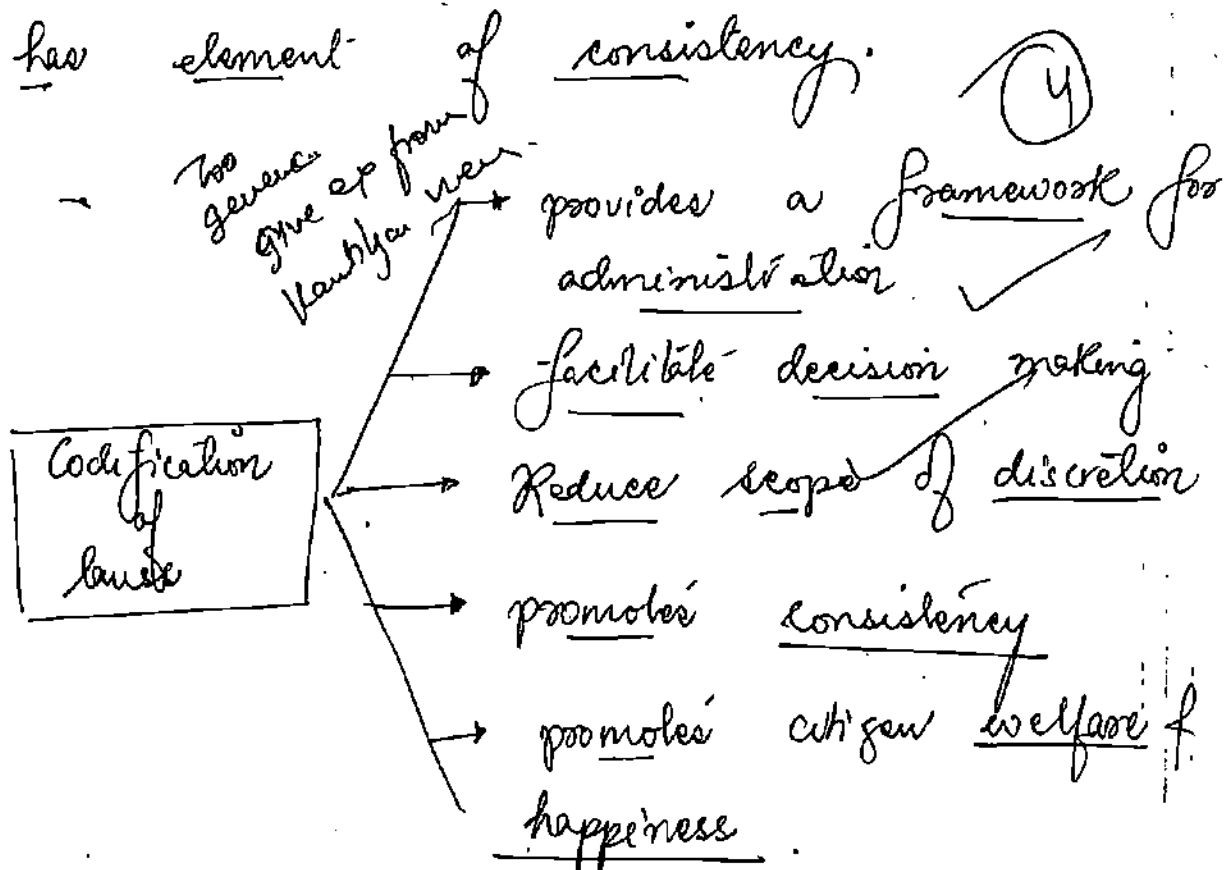 has element of consistency.
4
too
generic
give ex from
Kautilyan view
provides a framework for
administration
facilitate decision making
Codification
of
Reduce scope of discretion
promotes consistency
promotes citizen welfare &
happiness.